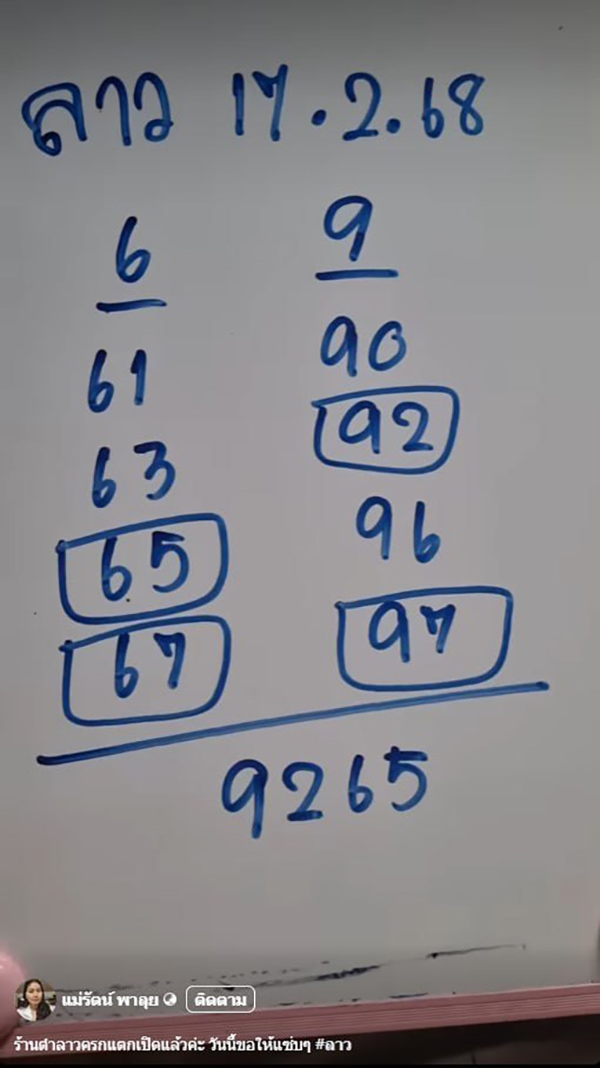 ลาว 17.2.68
6 9
61 90
63 92
65 96
67 97
9265
แม่รัตน์ พาลุย ติดตาม
ร้านตำลาวครกแตกเปิดแล้วค่ะ วันนี้ขอให้แซ่บๆ #ลาว